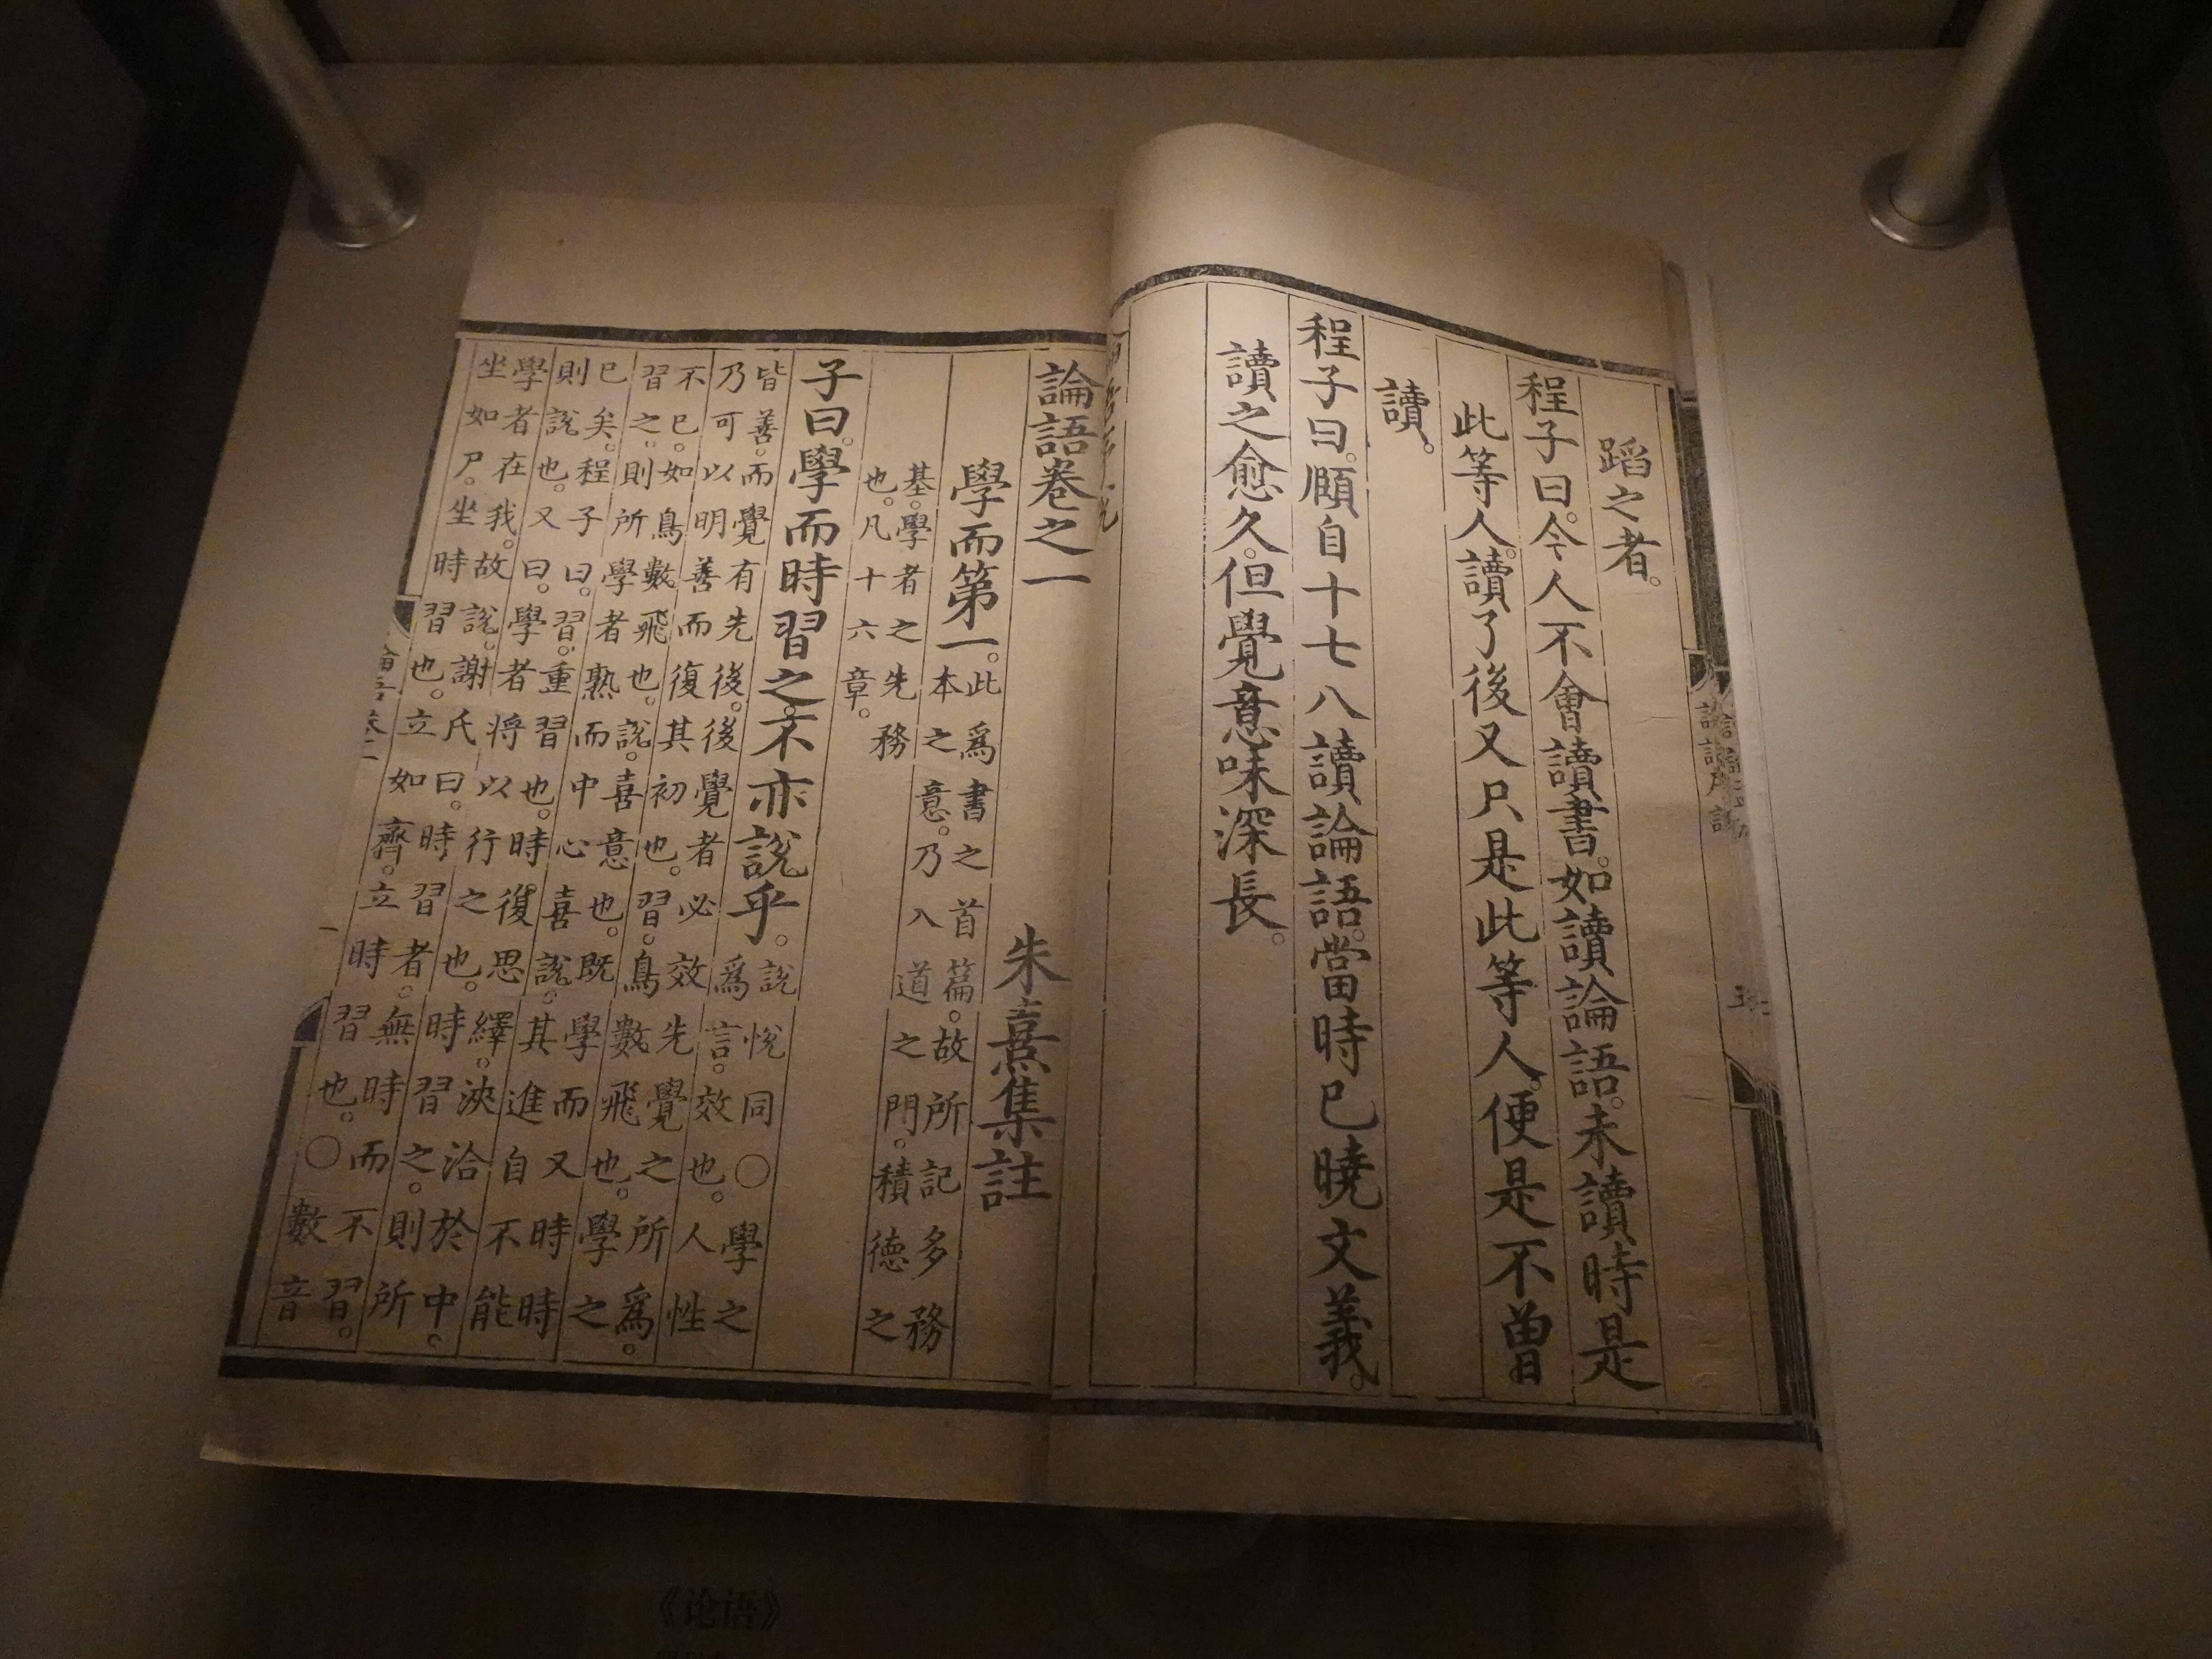 蹈之者。
程子曰。今人不會讀書。如讀論語。未讀時是
此等人。讀了後又只是此等人。便是不曾
讀。
程子曰。頤自十七八讀論語。當時已曉文義。
讀之愈久。但覺意味深長。
論語卷之一
朱熹集註
學而第一。此爲書之首篇。故所記多務
本之意。乃入道之門。積德之
基。學者之先務
也。凡十六章。
子曰。學而時習之。不亦說乎。說悅同○學之
爲言。效也。人性
皆善。而覺有先後。後覺者必效先覺之所爲。
乃可以明善而復其初也。習。鳥數飛也。學之
不已。如鳥數飛也。說。喜意也。既學而又時時
習之。則所學者熟而中心喜說。其進自不能
已矣。程子曰。習。重習也。時復思繹。浹洽於中。
則說也。又曰。學者將以行之也。時習之。則所
學者在我。故說。謝氏曰。時習者。無時而不習。
坐如尸。坐時習也。立如齊。立時習也。○數音
《论语》